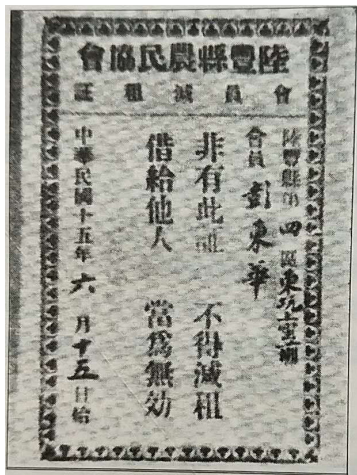 陸豐縣農民協會
會員減租証
陸豐縣第四區東坑鄉
會員 彭東華
非有此証 不得減租
借給他人 當爲無効
中華民國十五年六月十五日給